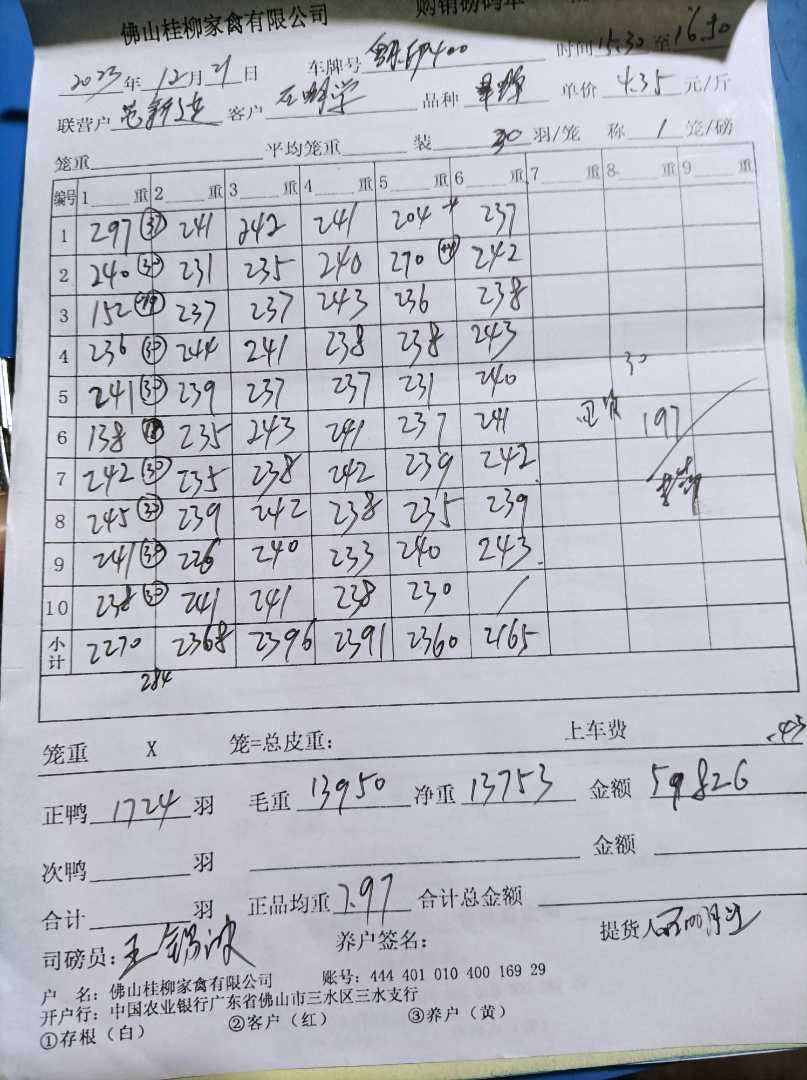 佛山桂柳家禽有限公司 购销磅码单
2023年12月21日 车牌号 400 时间15.30至16.30
联营户 客户 品种 单价 4.35 元/斤
笼重 平均笼重 装 30 羽/笼 称 1 笼/磅
编号 1 重 2 重 3 重 4 重 5 重 6 重 7 重 8 重 9 重
1 297 241 242 241 204 237
2 240 30 231 235 240 270 242
3 152 19 237 237 243 236 238
4 236 30 244 241 238 238 243 30
5 241 30 239 237 237 231 240
6 138 18 235 243 241 237 241 197
7 242 30 235 238 242 239 242
8 245 239 242 238 235 239
9 241 30 226 240 233 240 243
10 238 30 241 241 238 230 /
小计 2270 2368 2396 2391 2360 2165
284
笼重 X 笼=总皮重: 上车费
正鸭 1724 羽 毛重 13950 净重 13753 金额 59826
次鸭 羽 金额
合计 羽 正品均重 7.97 合计总金额
司磅员: 王锡波 养户签名: 提货人
户 名: 佛山桂柳家禽有限公司 账号: 444 401 010 400 169 29
开户行: 中国农业银行广东省佛山市三水区三水支行
①存根(白) ②客户(红) ③养户(黄)